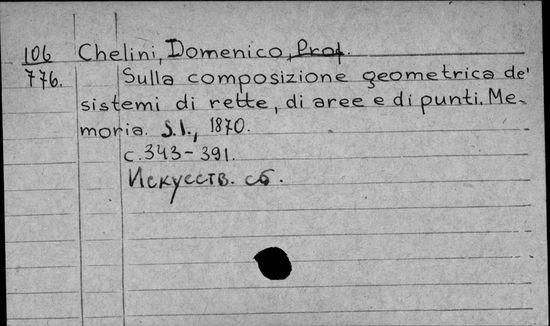 106 Chelini, Domenico, Prof.
776. Sulla composizione geometrica de'
sistemi di rette, di aree e di punti. Me-
moria. S.l., 1870.
c. 343-391.
Искусств. сб.